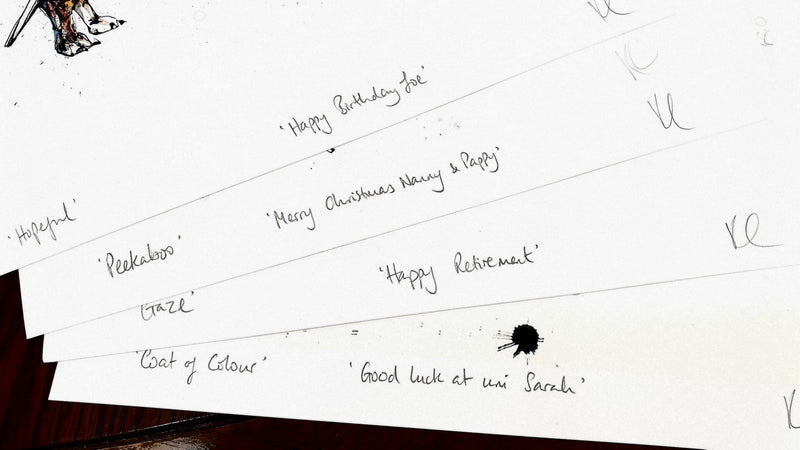 'Happy Birthday Joe'
'Hopeful'
'Merry Christmas Nanny & Pappy'
'Peekaboo'
'Happy Retirement'
Gaze'
'Good luck at uni Sarah'
'Coat of Colour'